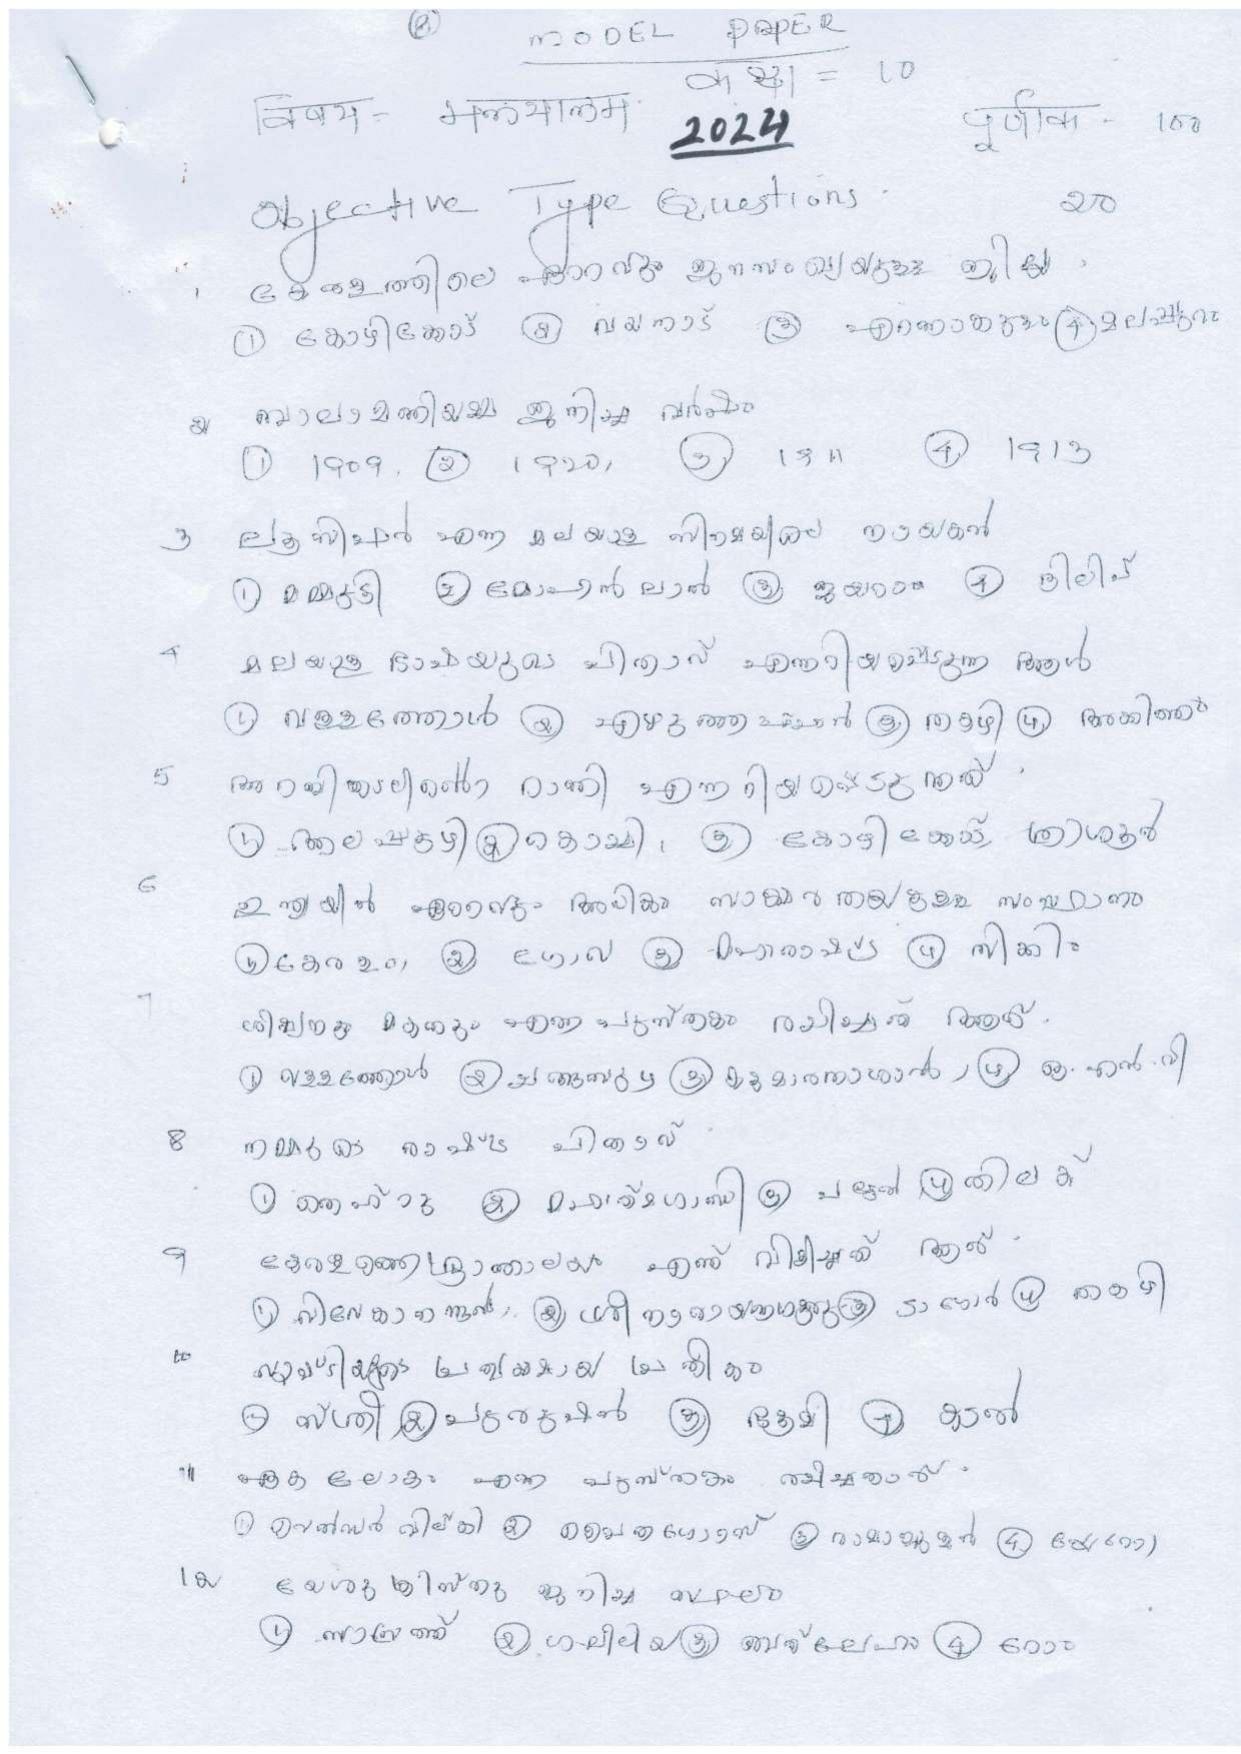 ②
MODEL PAPER
कक्षा = 10
विषय - मलयालम
2024
पूर्णांक - 100
Objective Type Questions. 20
1 കേരളത്തിലെ ഏറ്റവും ജനസംഖ്യയുള്ള ജില്ല.
① കോഴിക്കോട് ② വയനാട് ③ എറണാകുളം ④ മലപ്പുറം
2 ബാലാമണിയമ്മ ജനിച്ച വർഷം
① 1909. ② 1920, ③ 1911 ④ 1913
3 ലൂസിഫർ എന്ന മലയാള സിനമയിലെ നായകൻ
① മമ്മുട്ടി ② മോഹൻ ലാൽ ③ ജയറാം ④ ദിലിപ്
4 മലയാള ഭാഷയുടെ പിതാവ് എന്നറിയപ്പെടുന്ന ആൾ
① വള്ളത്തോൾ ② എഴുത്തച്ഛൻ ③ തകഴി ④ അക്കിത്തം
5 അറബികടലിന്റെ റാണി എന്നറിയപ്പെടുന്നത്
① ആലപ്പുഴ ② കൊച്ചി, ③ കോഴിക്കോട്, തൃശൂർ
6 ഇന്ത്യയിൽ ഏറ്റവും അധികം സാക്ഷരതയുള്ള സംസ്ഥാനം
① കേരളം, ② ഗോവ ③ മഹാരാഷ്ട്ര ④ സിക്കിം
7 ശിഷ്യനും മകനും എന്ന പുസ്തകം രചിച്ചത് ആര്.
① വള്ളത്തോൾ ② ചങ്ങമ്പുഴ ③ കുമാരനാശാൻ, ④ ഒ.എൻ.വി
8 നമ്മുടെ രാഷ്ട്ര പിതാവ്
① നെഹ്റു ② മഹാത്മഗാന്ധി ③ പട്ടേൽ ④ തിലക്
9 കേരളത്തെ ഭ്രാന്താലയം എന്ന് വിളിച്ചത് ആര്.
① വിവേകാനന്ദൻ, ② ശ്രീ നാരായണഗുരു ③ ടാഗോർ ④ തകഴി
10 സൃഷ്ടിയുടെ പ്രത്യക്ഷമായ പ്രതീകം
① സ്ത്രീ ② പുരുഷൻ ③ ഭൂമി ④ കടൽ
11 ഏക ലോകം എന്ന പുസ്തകം രചിച്ചതാര്.
① വെൻഡൽ വിൽകി ② ③ രാമാനുജൻ ④
12 യേശു ക്രിസ്തു ജനിച്ച സ്ഥലം
① നസ്രത്ത് ② ഗലീലിയ ③ ബത്ലേഹം ④ റോം